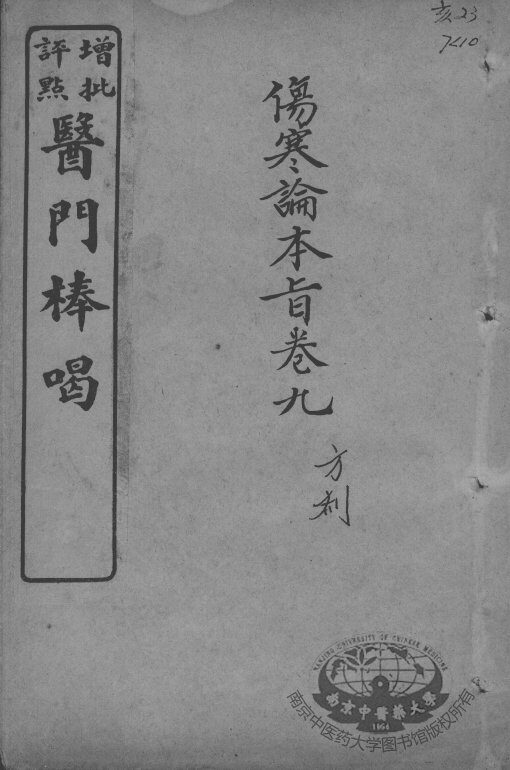 亥23
7<10
增批
評點
醫門棒喝
傷寒論本旨卷九
方剂
NANJING UNIVERSITY OF CHINESE MEDICINE
南京中醫藥大學
1954
南京中医药大学图书馆版权所有